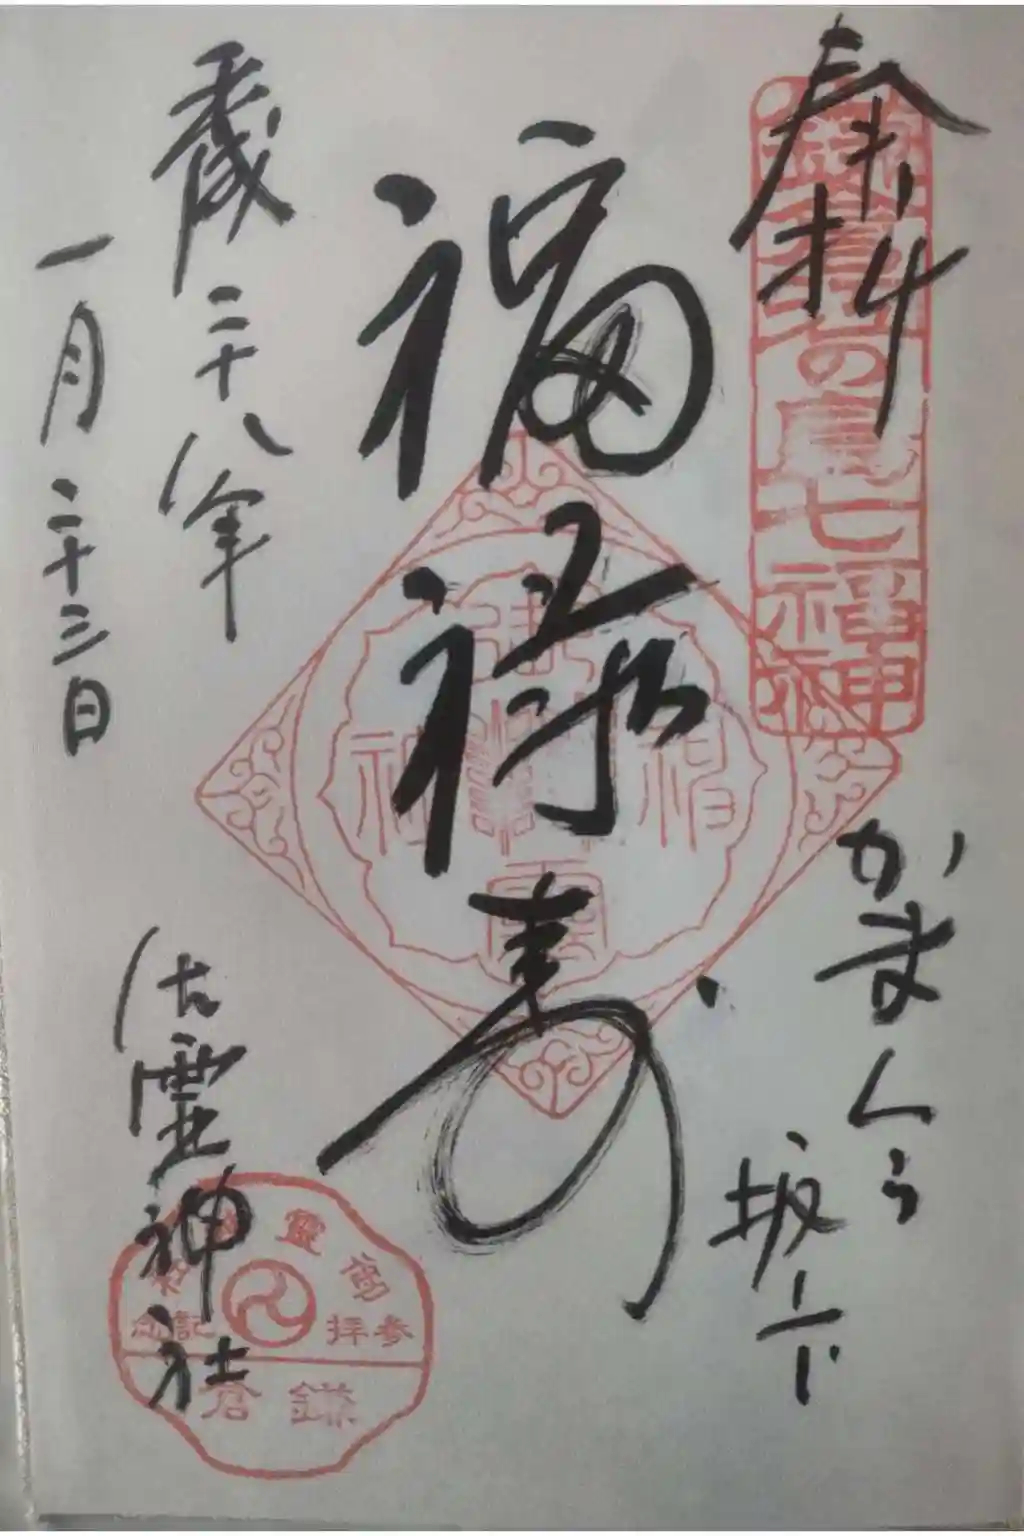 奉拝
鎌倉江の島七福神
かまくら
坂ノ下
福禄寿
平成二十八年
一月二十三日
御霊神社
御靈神社
参拝記念
鎌倉